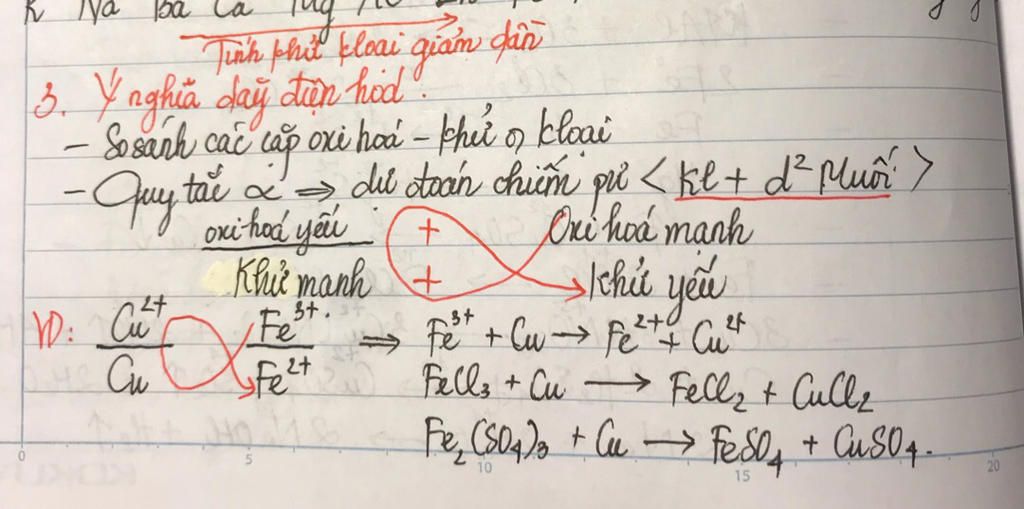 K Na Ba Ca Mg
Tính khử kloại giảm dần
3. Ý nghĩa dãy điện hoá.
- So sánh các cặp oxi hoá - khử of kloại
- Quy tắc α ⇒ dự đoán chiếm pư < Kl + d² Muối >
oxi hoá yếu + Oxi hoá mạnh
Khử mạnh + Khử yếu
VD: Cu²⁺/Cu Fe³⁺/Fe²⁺ ⇒ Fe³⁺ + Cu → Fe²⁺ + Cu²⁺
FeCl₃ + Cu → FeCl₂ + CuCl₂
Fe₂(SO₄)₃ + Cu → FeSO₄ + CuSO₄.
0 5 10 15 20